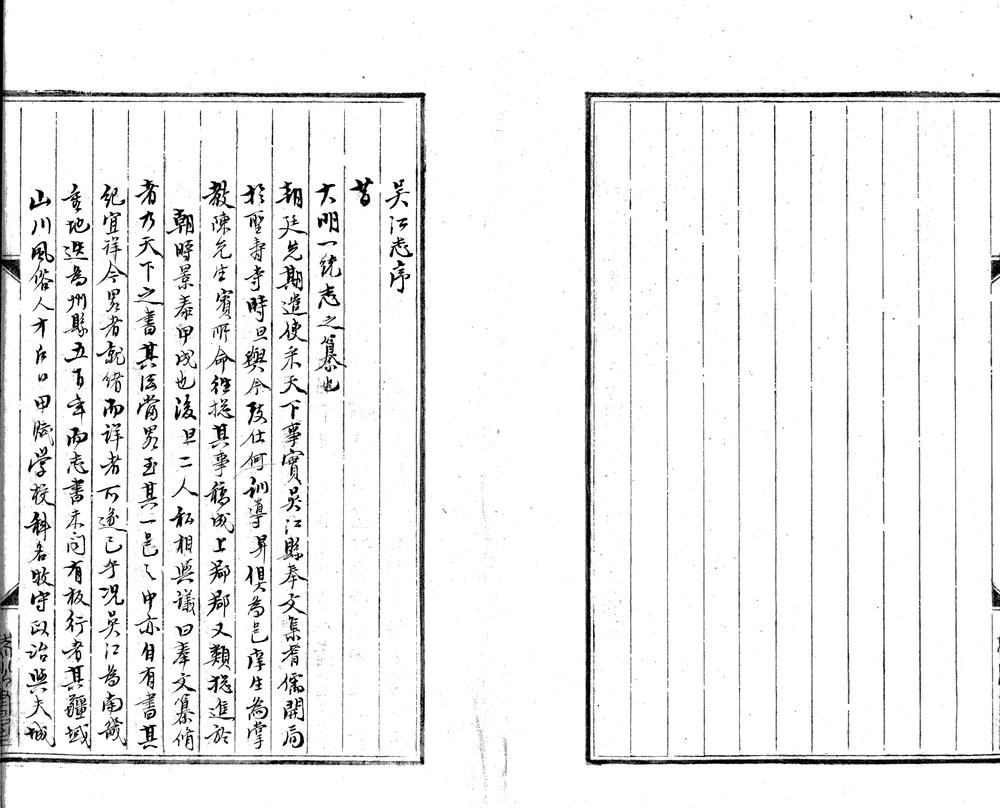 吳江志序
昔
大明一統志之纂也
朝廷先期遣使采天下事實吳江縣奉文集耆儒開局
於聖壽寺時旦與今致仕何訓導昇俱爲邑庠生爲掌
教陳先生賓所命往捴其事稿成上郡郡又類捴進於
朝時景泰甲戌也後旦二人私相與議曰奉文纂脩
者乃天下之書其法當畧至其一邑之中亦自有書其
紀宜詳今畧者就緒而詳者可遂已乎况吳江爲南畿
重地迭爲州縣五百年而志書未聞有板行者其疆域
山川風俗人才戶口田賦學校科名牧守政治與夫城